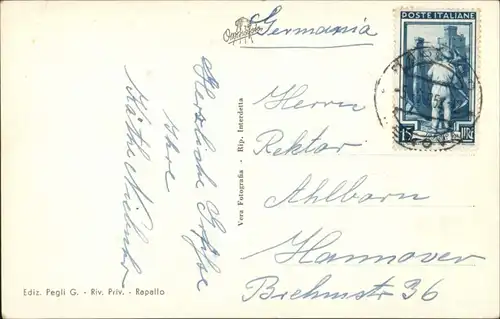 Germania
POSTE ITALIANE
15
LIRE
Herrn
Rektor
Ahlborn
Hannover
Brehmstr 36
Herzliche Grüße
Ihre
Käthe
Vera Fotografia - Rip. Interdetta
Ediz. Pegli G. - Riv. Priv. - Rapallo